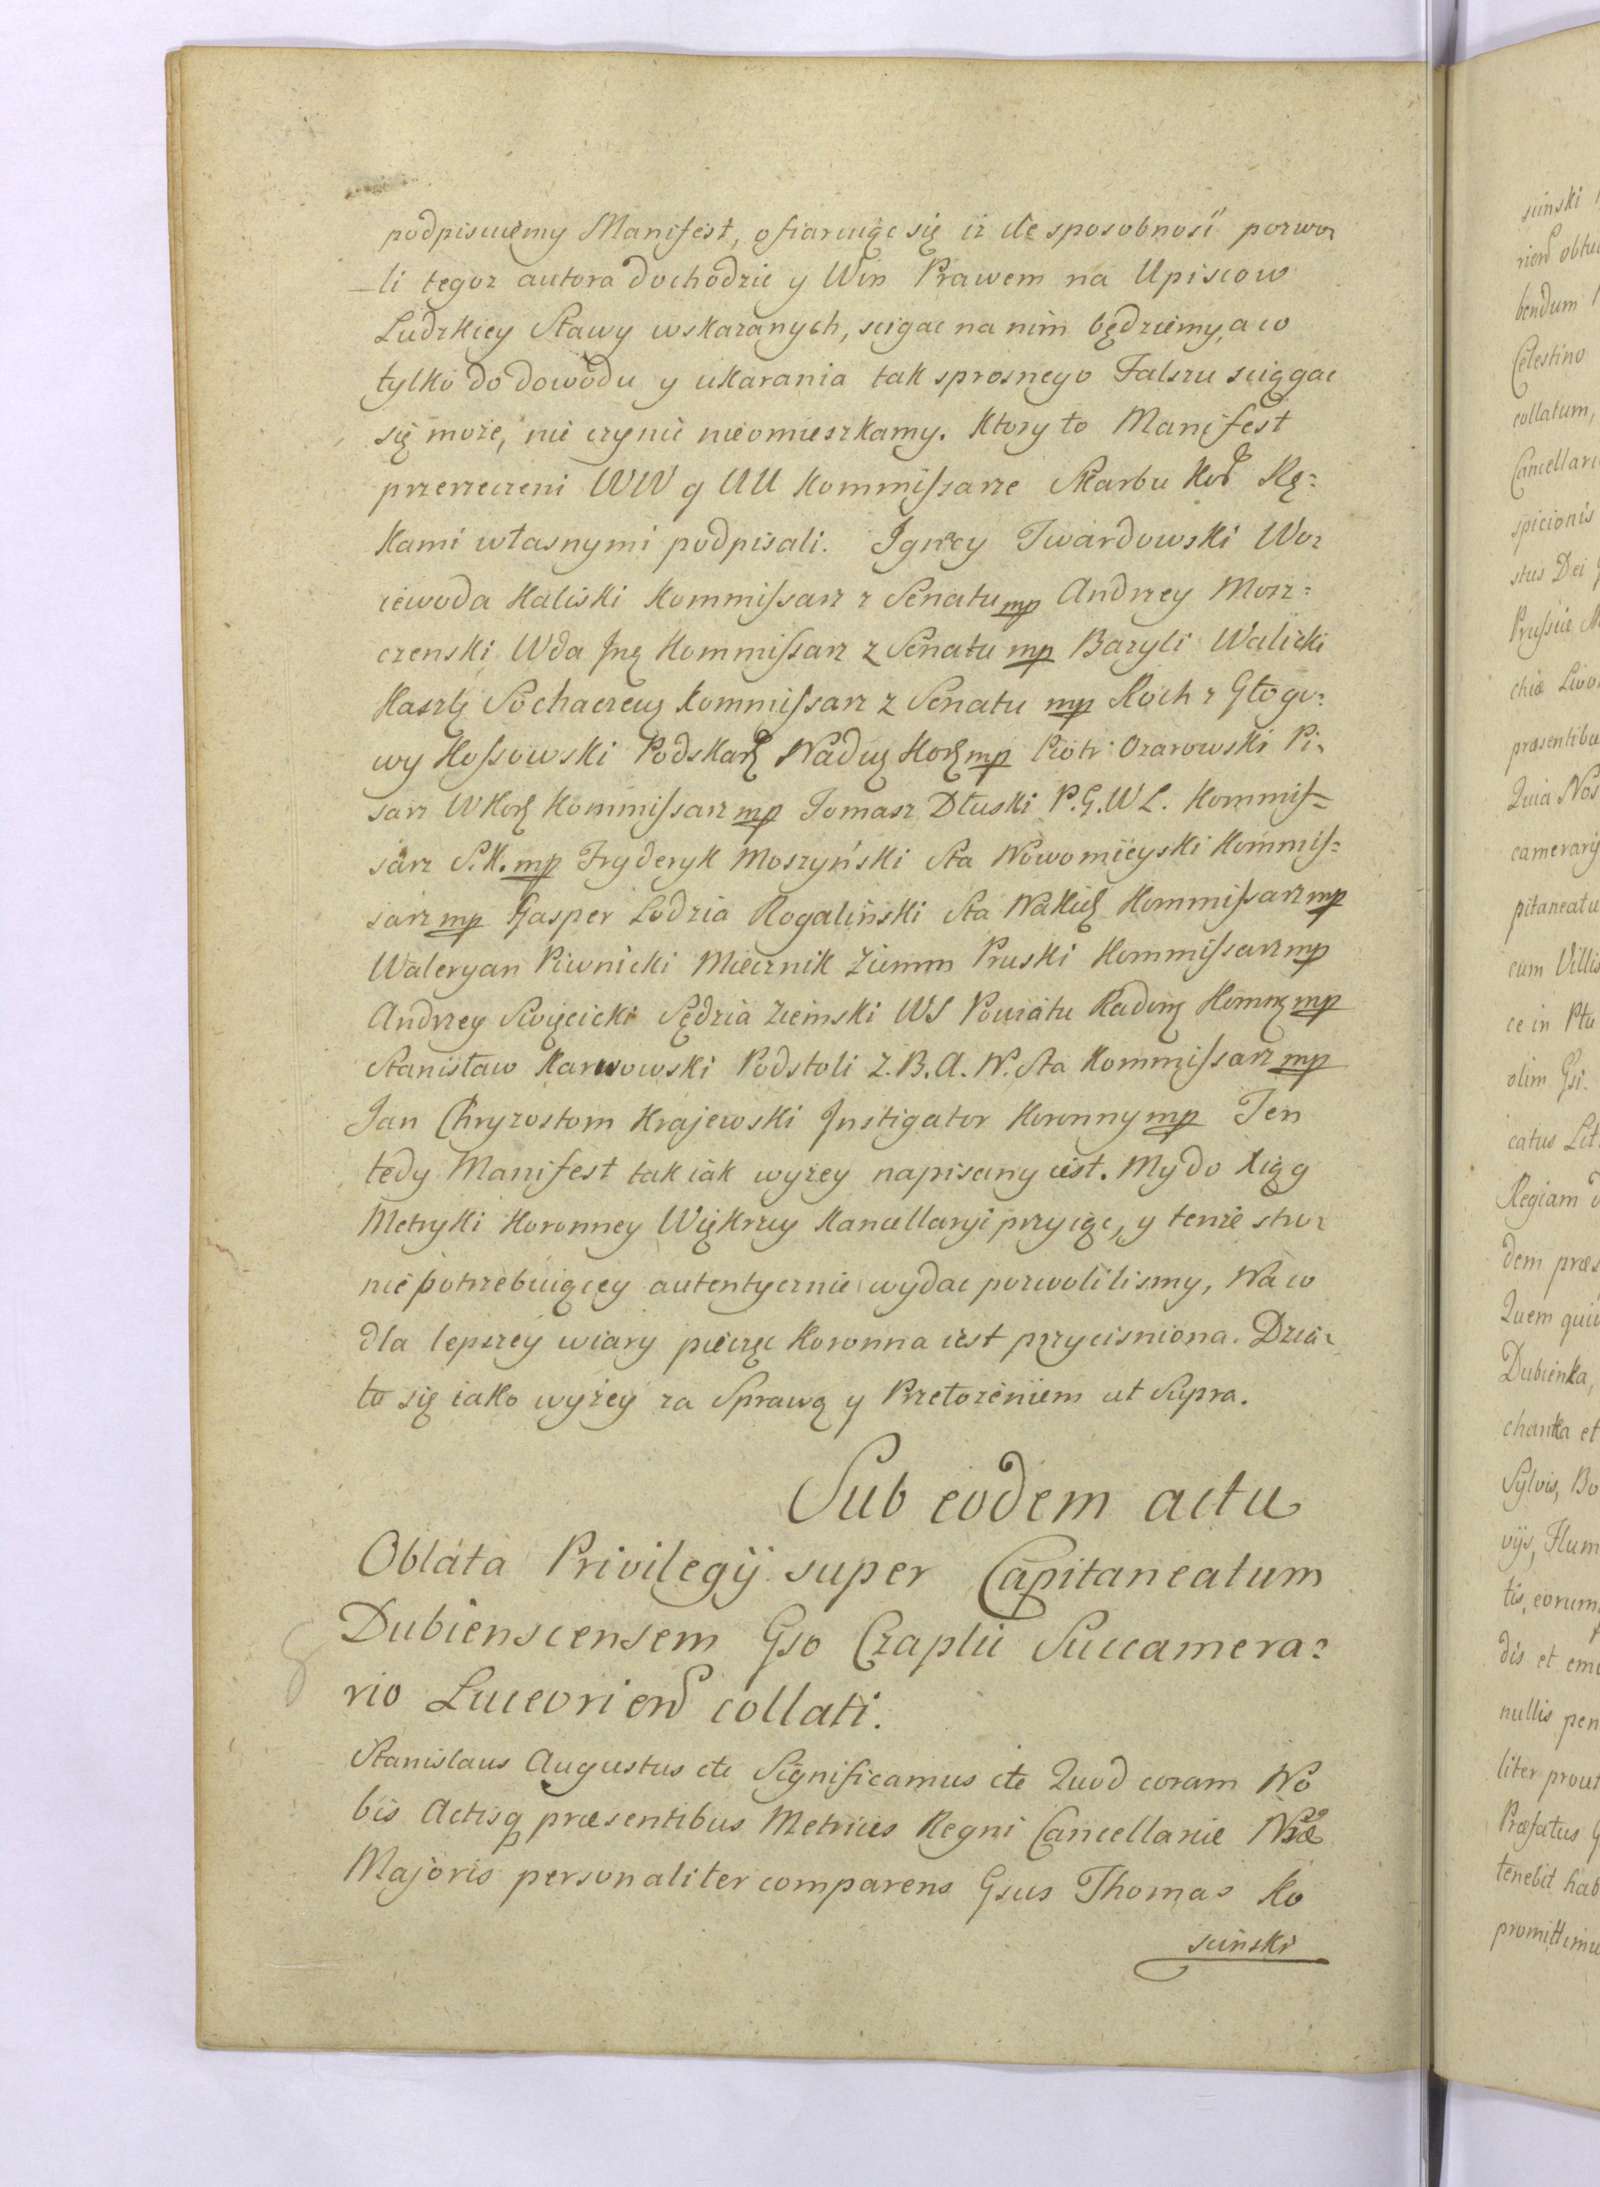 podpisuiemy Manifest, ofiaruiąc się iz ile sposobność pozwo-
li tegoz autora dochodzić y Win Prawem na Upiscow
Ludzkiey Sławy wskazanych, scigac na nim będziemy, a co
tylko do dowodu y ukarania tak sprosnego Falszu sciągac
się może, nie czynić nieomieszkamy. Ktory to Manifest
przerzeczeni WW y UU Kommissarze Skarbu Kor Rę-
kami własnymi podpisali. Ignacy Twardowski Wo-
iewoda Kaliski Kommissarz z Senatu mp Andrzey Mosz-
czenski Wda Ing Kommissarz z Senatu mp Bazyli Walicki
Kasztl Sochaczew Kommissarz z Senatu mp Roch z Głogo-
wy Kossowski Podskar Nadw Kor mp Piotr Ozarowski Pi-
sarz WKor Kommissarz mp Tomasz Dłuski P.G.W L. Kommis-
sarz S.K. mp Fryderyk Moszyński Sta Nowomieyski Kommis-
sarz mp Gasper Lodzia Rogaliński Sta Nakiel Kommissarz mp
Waleryan Piwnicki Miecznik Ziemm Pruski Kommissarz mp
Andrzey Swięcicki Sędzia Ziemski WS Powiatu Radom Komm mp
Stanisław Karwowski Podstoli Z.B.A.N. Sta Kommissarz mp
Jan Chryzostom Krajewski Instigator Koronny mp Ten
tedy Manifest tak iak wyzey napisany iest. My do Xiąg
Metryki Koronney Większey Kancellaryi przyiąc, y tenze stro-
nie potrzebuiącey autentycznie wydac pozwolilismy, Na co
dla lepszey wiary pieczęc Koronna iest przycisniona. Dzia-
ło się iako wyżey za Sprawą y Przełożeniem ut Supra.
Sub eodem actu
Oblata Privilegij super Capitaneatum
Dubienscensem Gso Czaplic Succamera-
rio Luceorien collati.
Stanislaus Augustus etc Significamus etc Quod coram No
bis Actisq præsentibus Metrices Regni Cancellariæ Nræ
Majoris personaliter comparens Gsus Thomas Ko
sinski
sinski
rien obtu
bendum
Celestino
collatum,
Cancellari
spicionis
stus Dei
Prussiæ M
chiæ Livo
præsentibu
Quia Nos
camerarij
pitaneatu
cum Villis
ce in Pla
olim Gsi.
catus Lit
Regiam d
dem præs
Quem qui
Dubienka,
chanka et
Sylvis, Bo
vijs, Flum
tis, eorum
dis et emi
nullis pen
liter prout
Præfatus G
tenebit hab
promittimu